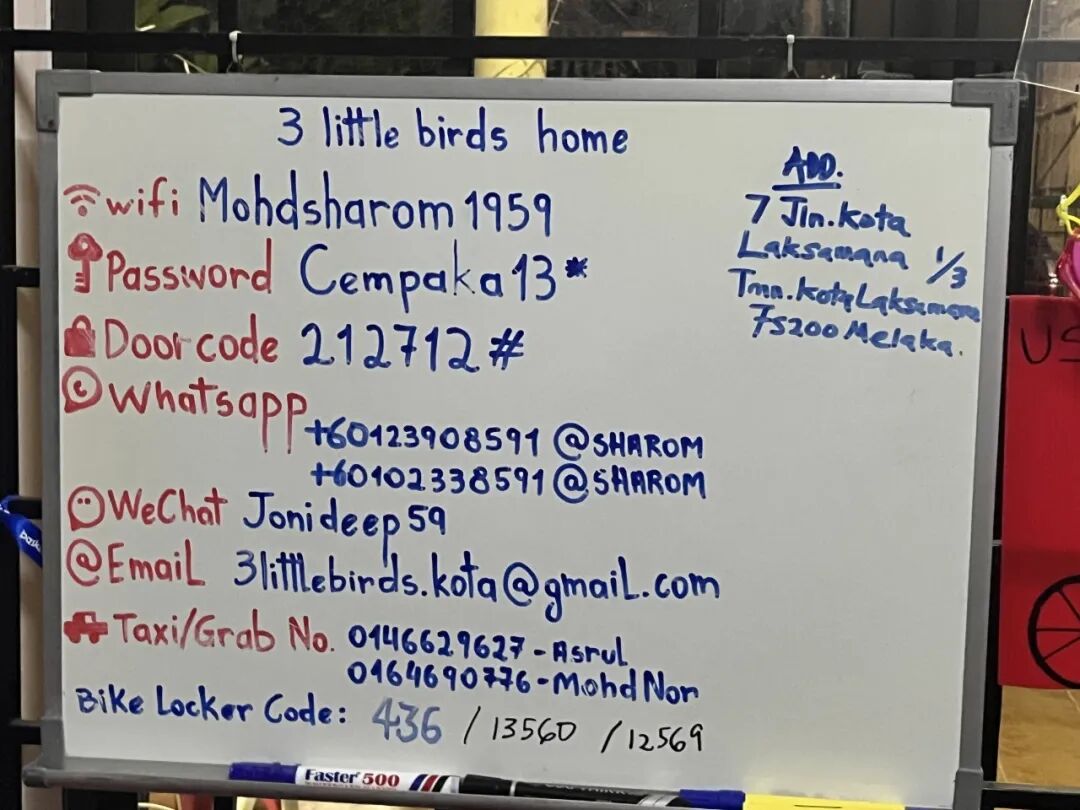 3 little birds home
wifi Mohdsharom1959
Password Cempaka13*
Door code 212712#
Whatsapp
+60123908591 @SHAROM
+60102338591 @SHAROM
WeChat Jonideep59
@EmaiL 3littlebirds.kota@gmaiL.com
Taxi/Grab No. 0146629627-Asrul
0164690776-Mohd Nor
Bike Locker Code: 436 / 13560 / 12569
ADD.
7 Jln.Kota
Laksamana 1/3
Tmn.Kota Laksamana
75200 Melaka.
US
Faster 500